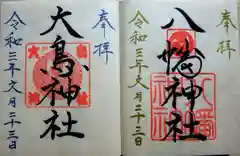 奉拝
八幡神社
令和三年文月二十三日
奉拝
大鳥神社
令和三年文月二十三日